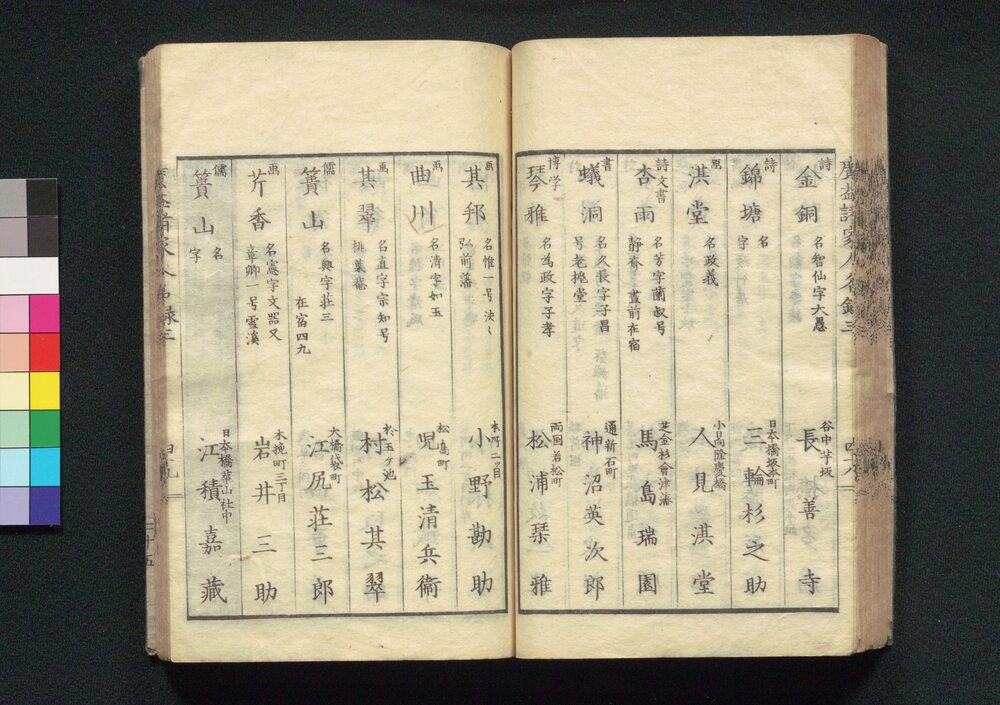 廣益諸家人名録三
詩
金銅
名智仙字大愚
谷中三崎坂
長善寺
詩
錦塘
名
字
日本橋坂本町
三輪杉之助
画
淇堂
名政義
小日向隆慶橋
人見淇堂
詩文書
杏雨
名芳字蘭叔号
静斎一畫前在宿
芝金杉會津藩
馬島瑞園
書
蟻洞
名久長字子昌
号老挑堂
通新石町
神沼英次郎
博学
琴雅
名為政字子孝
両国若松町
松浦琹雅
画
其邦
名惟一号決々
弘前藩
本所二ツ目
小野勘助
画
曲川
名清字如玉
松島町
児玉清兵衛
画
其翠
名直字宗知号
桃葉菴
於玉ケ池
村松其翠
儒
簣山
名興字荘三
在宿四九
大橋袋町
江尻荘三郎
画
芹香
名憲字文器又
章卿一号雪溪
木挽町三丁目
岩井三助
儒
簣山
名
字
日本橋葦山社中
江積嘉藏